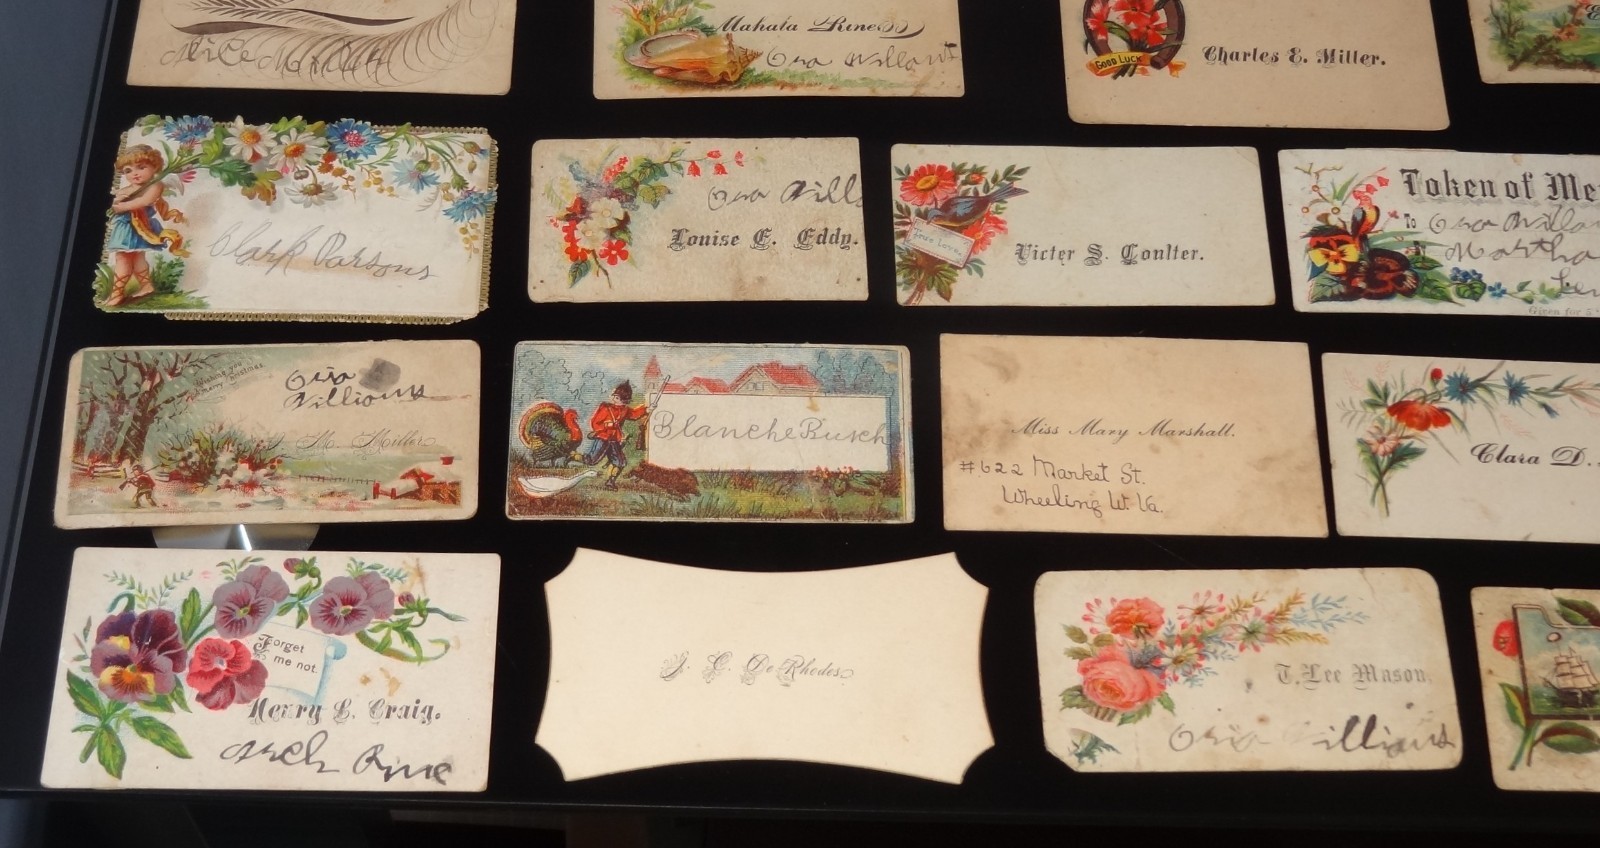 Alice
Mahala Rine
Ora Williams
GOOD LUCK
Charles E. Miller.
Clark Parsons
Ora Will
Louise E. Eddy.
True Love
Victer S. Coulter.
Token of Me
To Ora Willia
Martha
Given for 5
Wishing you a
merry Christmas.
Ora
Williams
M. Miller
Blanche Busch
Miss Mary Marshall.
#622 Market St.
Wheeling W. Va.
Clara D.
Forget
me not.
Henry L. Craig.
Arch Rine
J. C. De Rhodes
T. Lee Mason.
Ora Williams